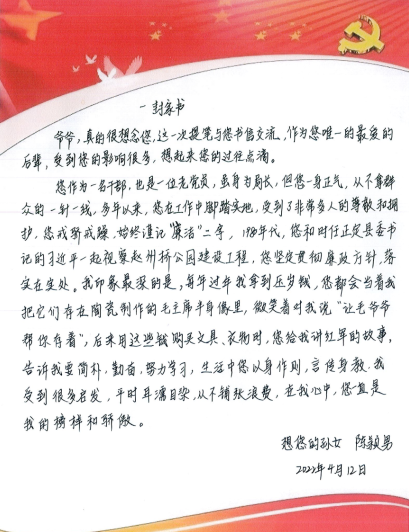 一封家书
爷爷,真的很想念您,这一次提笔与您书信交流,作为您唯一的最爱的
后辈,受到您的影响很多,想起来您的过往点滴。
您作为一名干部,也是一位老党员,虽身为局长,但您一身正气,从不拿群
众的一针一线,多年以来,您在工作中脚踏实地,受到了非常多人的尊敬和拥
护,您戒骄戒躁,始终谨记“廉洁”二字,1984年代,您和时任正定县委书
记的习近平一起视察赵州桥公园建设工程,您坚定贯彻廉政方针,落
实在实处。我印象最深的是,每年过年我拿到压岁钱,您都会当着我
把它们存在陶瓷制作的毛主席半身像里,微笑着对我说“让毛爷爷
帮你存着”,后来用这些钱购买文具、衣物时,您给我讲红军的故事,
告诉我要简朴,勤奋,努力学习,生活中您以身作则,言传身教.我
受到很多启发,平时耳濡目染,从不铺张浪费,在我心中,您就是
我的榜样和骄傲。
想您的孙女 陈颖男
2022年4月12日